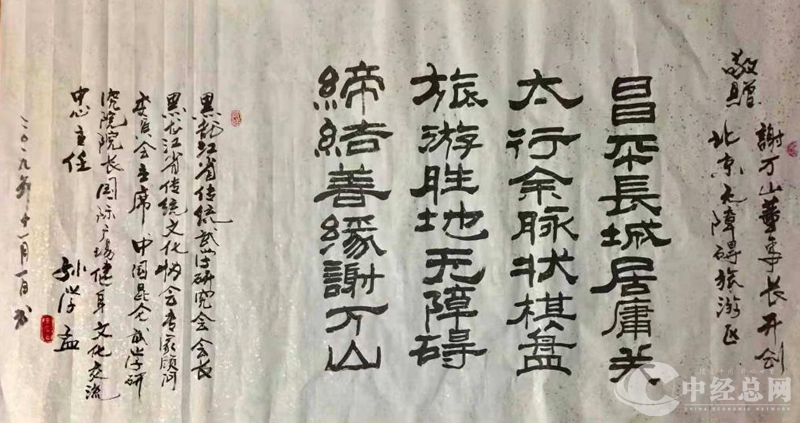 敬贈
謝万山董事長开创
北京无障碍旅游区
昌平長城居庸关
太行余脉状棋盘
旅游胜地无障碍
締结善緣謝万山
黑龙江省传统武学研究会会长
黑龙江省传统文化协会专家顾问
委员会主席 中国昆仑武学研
究院院长国际广场健身文化交流
中心主任
孙学孟
二〇一九年十一月一日书
中经总网
CHINA ECONOMIC NETWORK